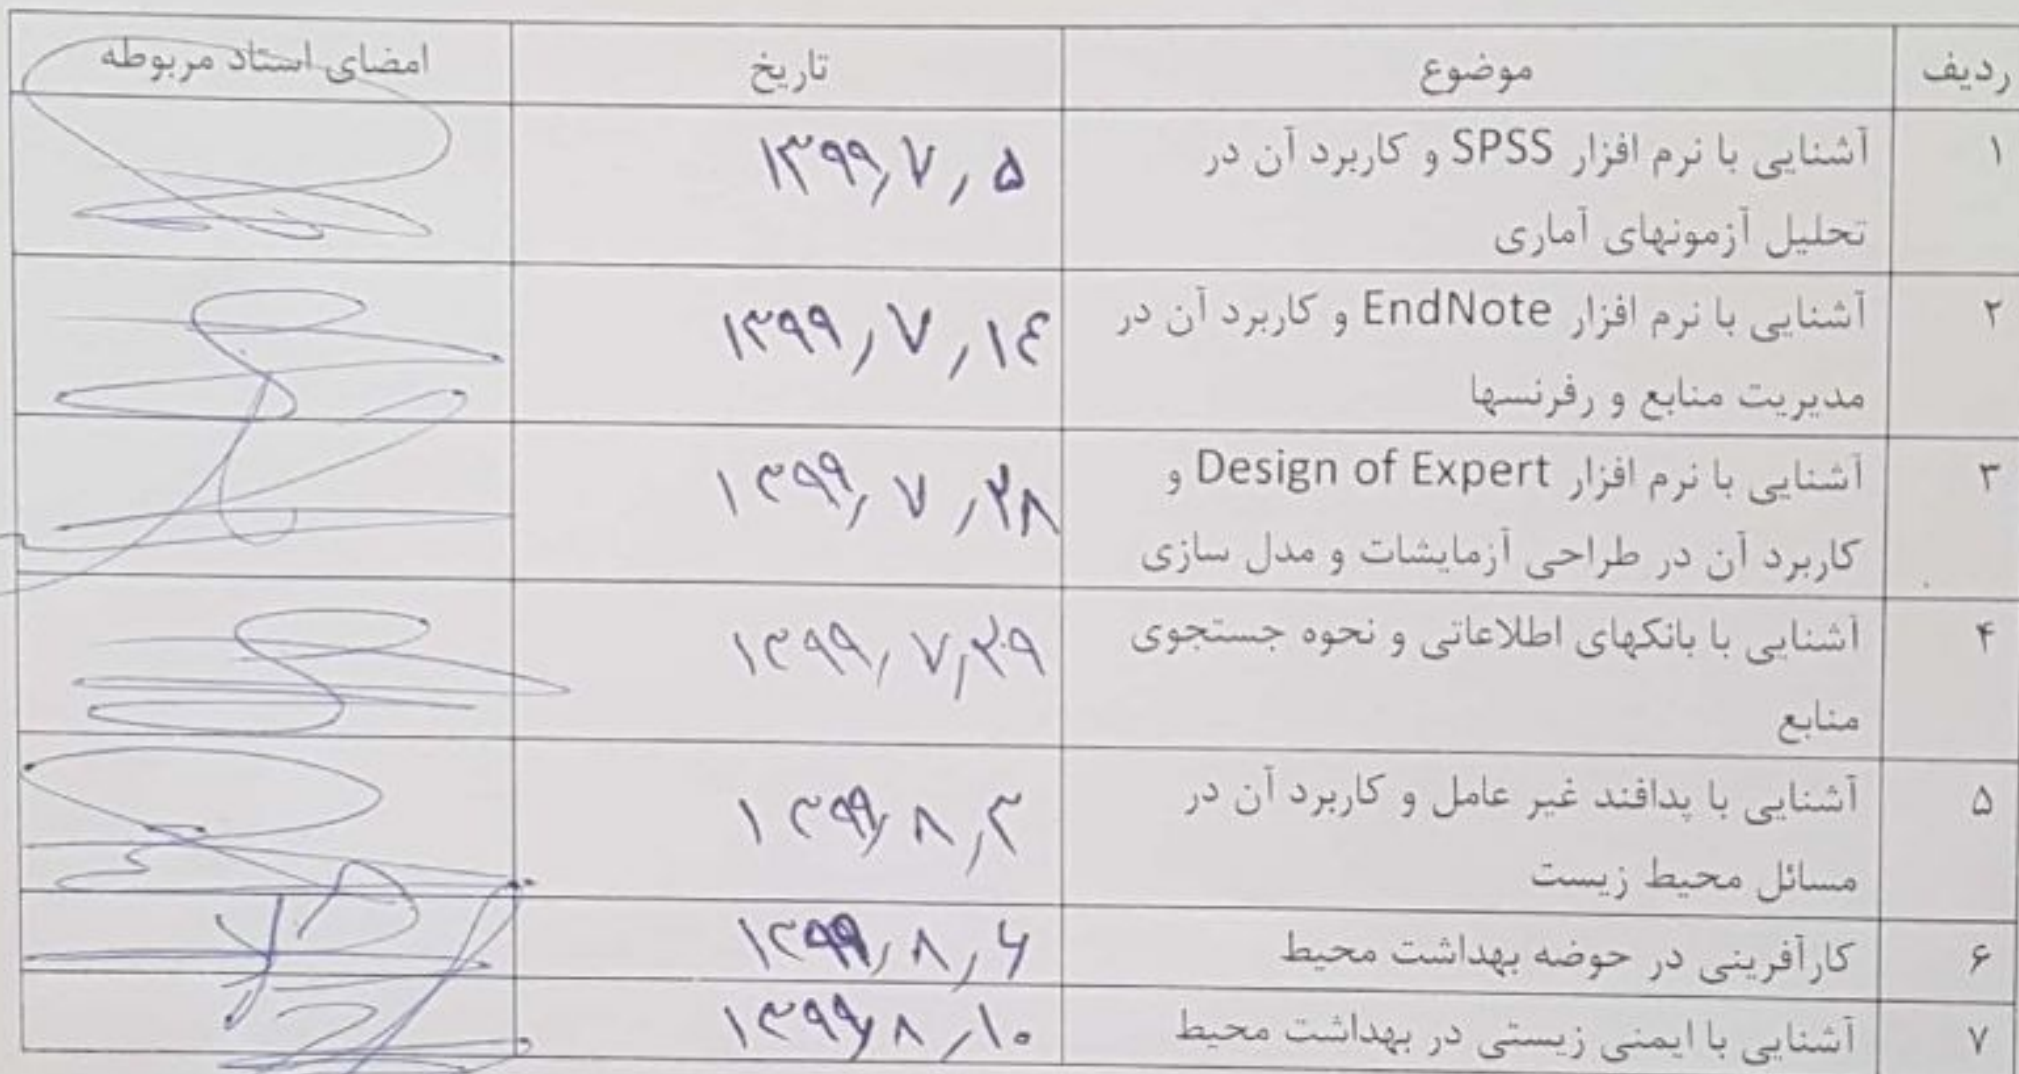 ردیف موضوع تاریخ امضای استاد مربوطه
۱ آشنایی با نرم افزار SPSS و کاربرد آن در ۱۳۹۹٫۷٫۵
تحلیل آزمونهای آماری
۲ آشنایی با نرم افزار EndNote و کاربرد آن در ۱۳۹۹٫۷٫۱۴
مدیریت منابع و رفرنسها
۳ آشنایی با نرم افزار Design of Expert و ۱۳۹۹٫۷٫۲۸
کاربرد آن در طراحی آزمایشات و مدل سازی
۴ آشنایی با بانکهای اطلاعاتی و نحوه جستجوی ۱۳۹۹٫۷٫۲۹
منابع
۵ آشنایی با پدافند غیر عامل و کاربرد آن در ۱۳۹۹٫۸٫۳
مسائل محیط زیست
۶ کارآفرینی در حوضه بهداشت محیط ۱۳۹۹٫۸٫۶
۷ آشنایی با ایمنی زیستی در بهداشت محیط ۱۳۹۹٫۸٫۱۰